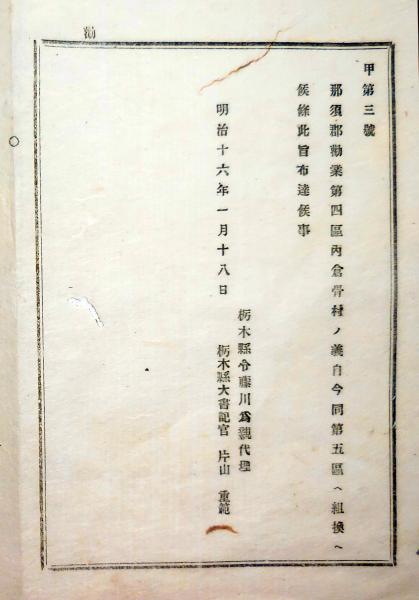 勧
甲第三號
那須郡勸業第四區內倉骨村ノ義自今同第五區ヘ組換ヘ
候條此旨布達候事
明治十六年一月十八日
栃木縣令藤川爲親代理
栃木縣大書記官 片山 重範